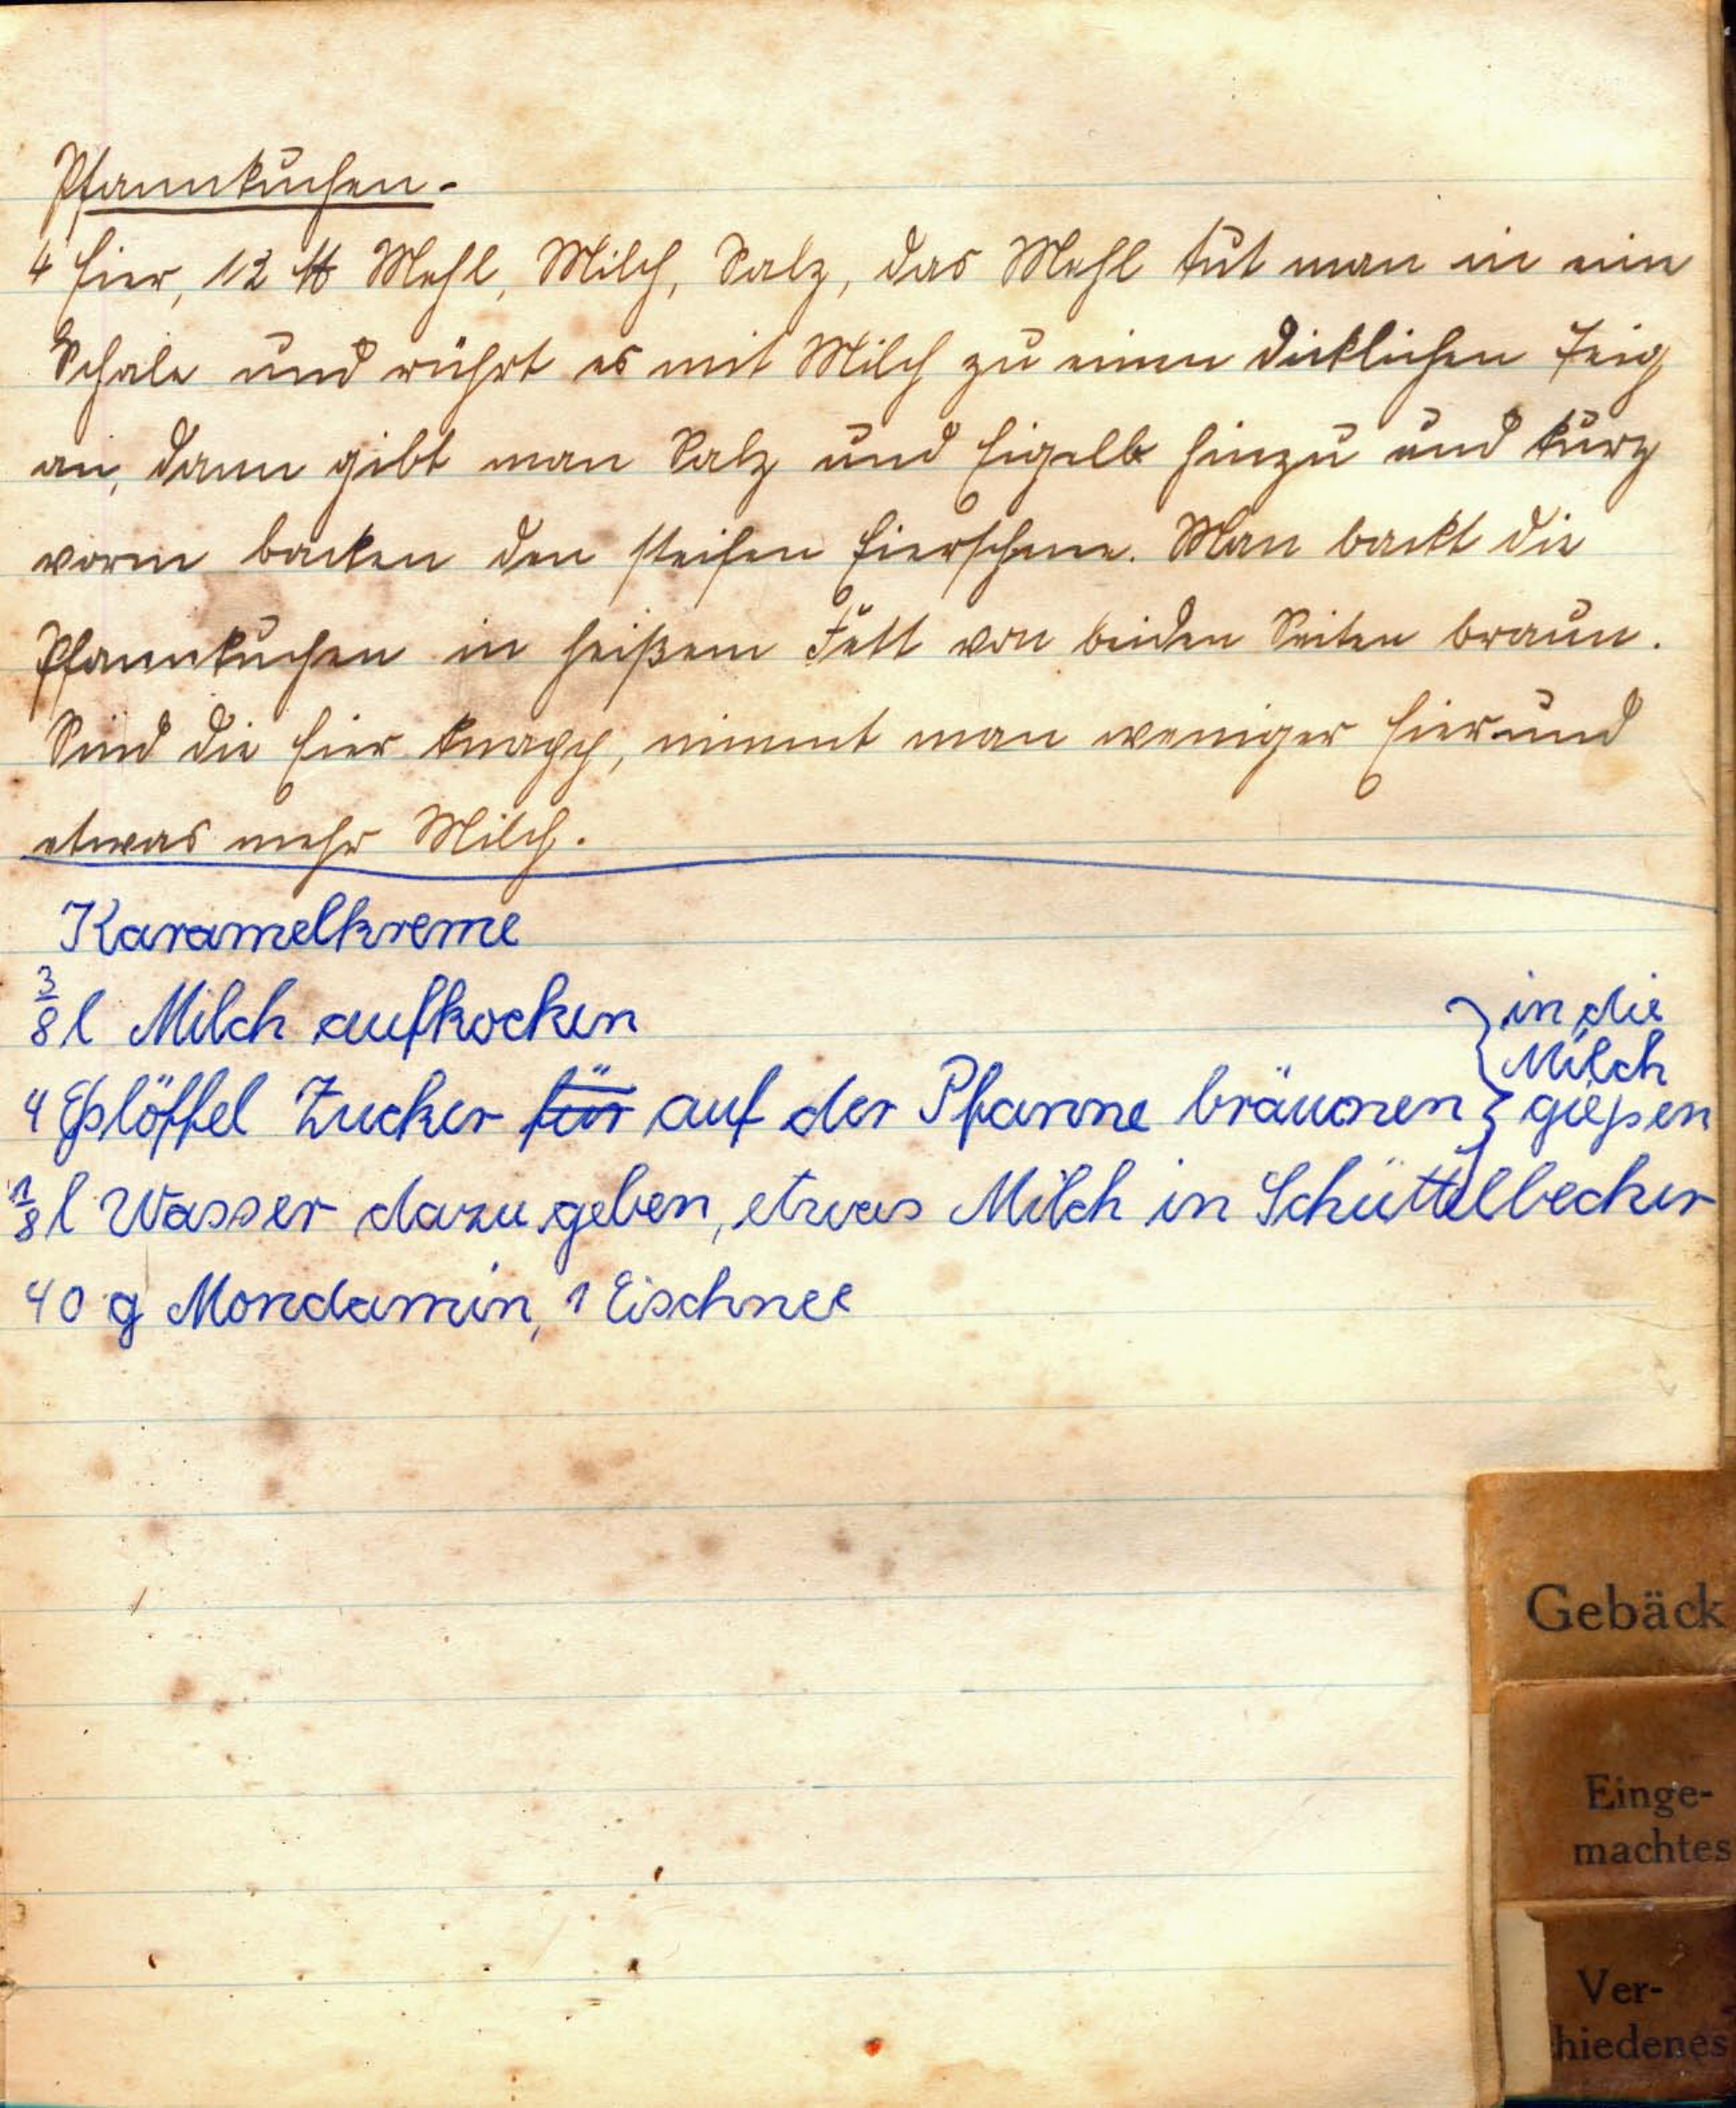 Pfannkuchen.
4 Eier, 12 ℔ Mehl, Milch, Salz, das Mehl tut man in ein
Schale und rührt es mit Milch zu einen dicklichen Teig
an, dann gibt man Salz und Eigelb hinzu und kurz
vorm backen den steifen Eierschnee. Man backt die
Pfannkuchen in heißem Fett von beiden Seiten braun.
Sind die Eier knapp, nimmt man weniger Eier und
etwas mehr Milch.
Karamelkreme
3/8 l Milch aufkochen
4 Eßlöffel Zucker für auf der Pfanne bräunen } in die Milch gießen
1/8 l Wasser dazu geben, etwas Milch in Schüttelbecher
40 g Mondamin, 1 Eischnee
Gebäck
Einge-
machtes
Ver-
hiedenes